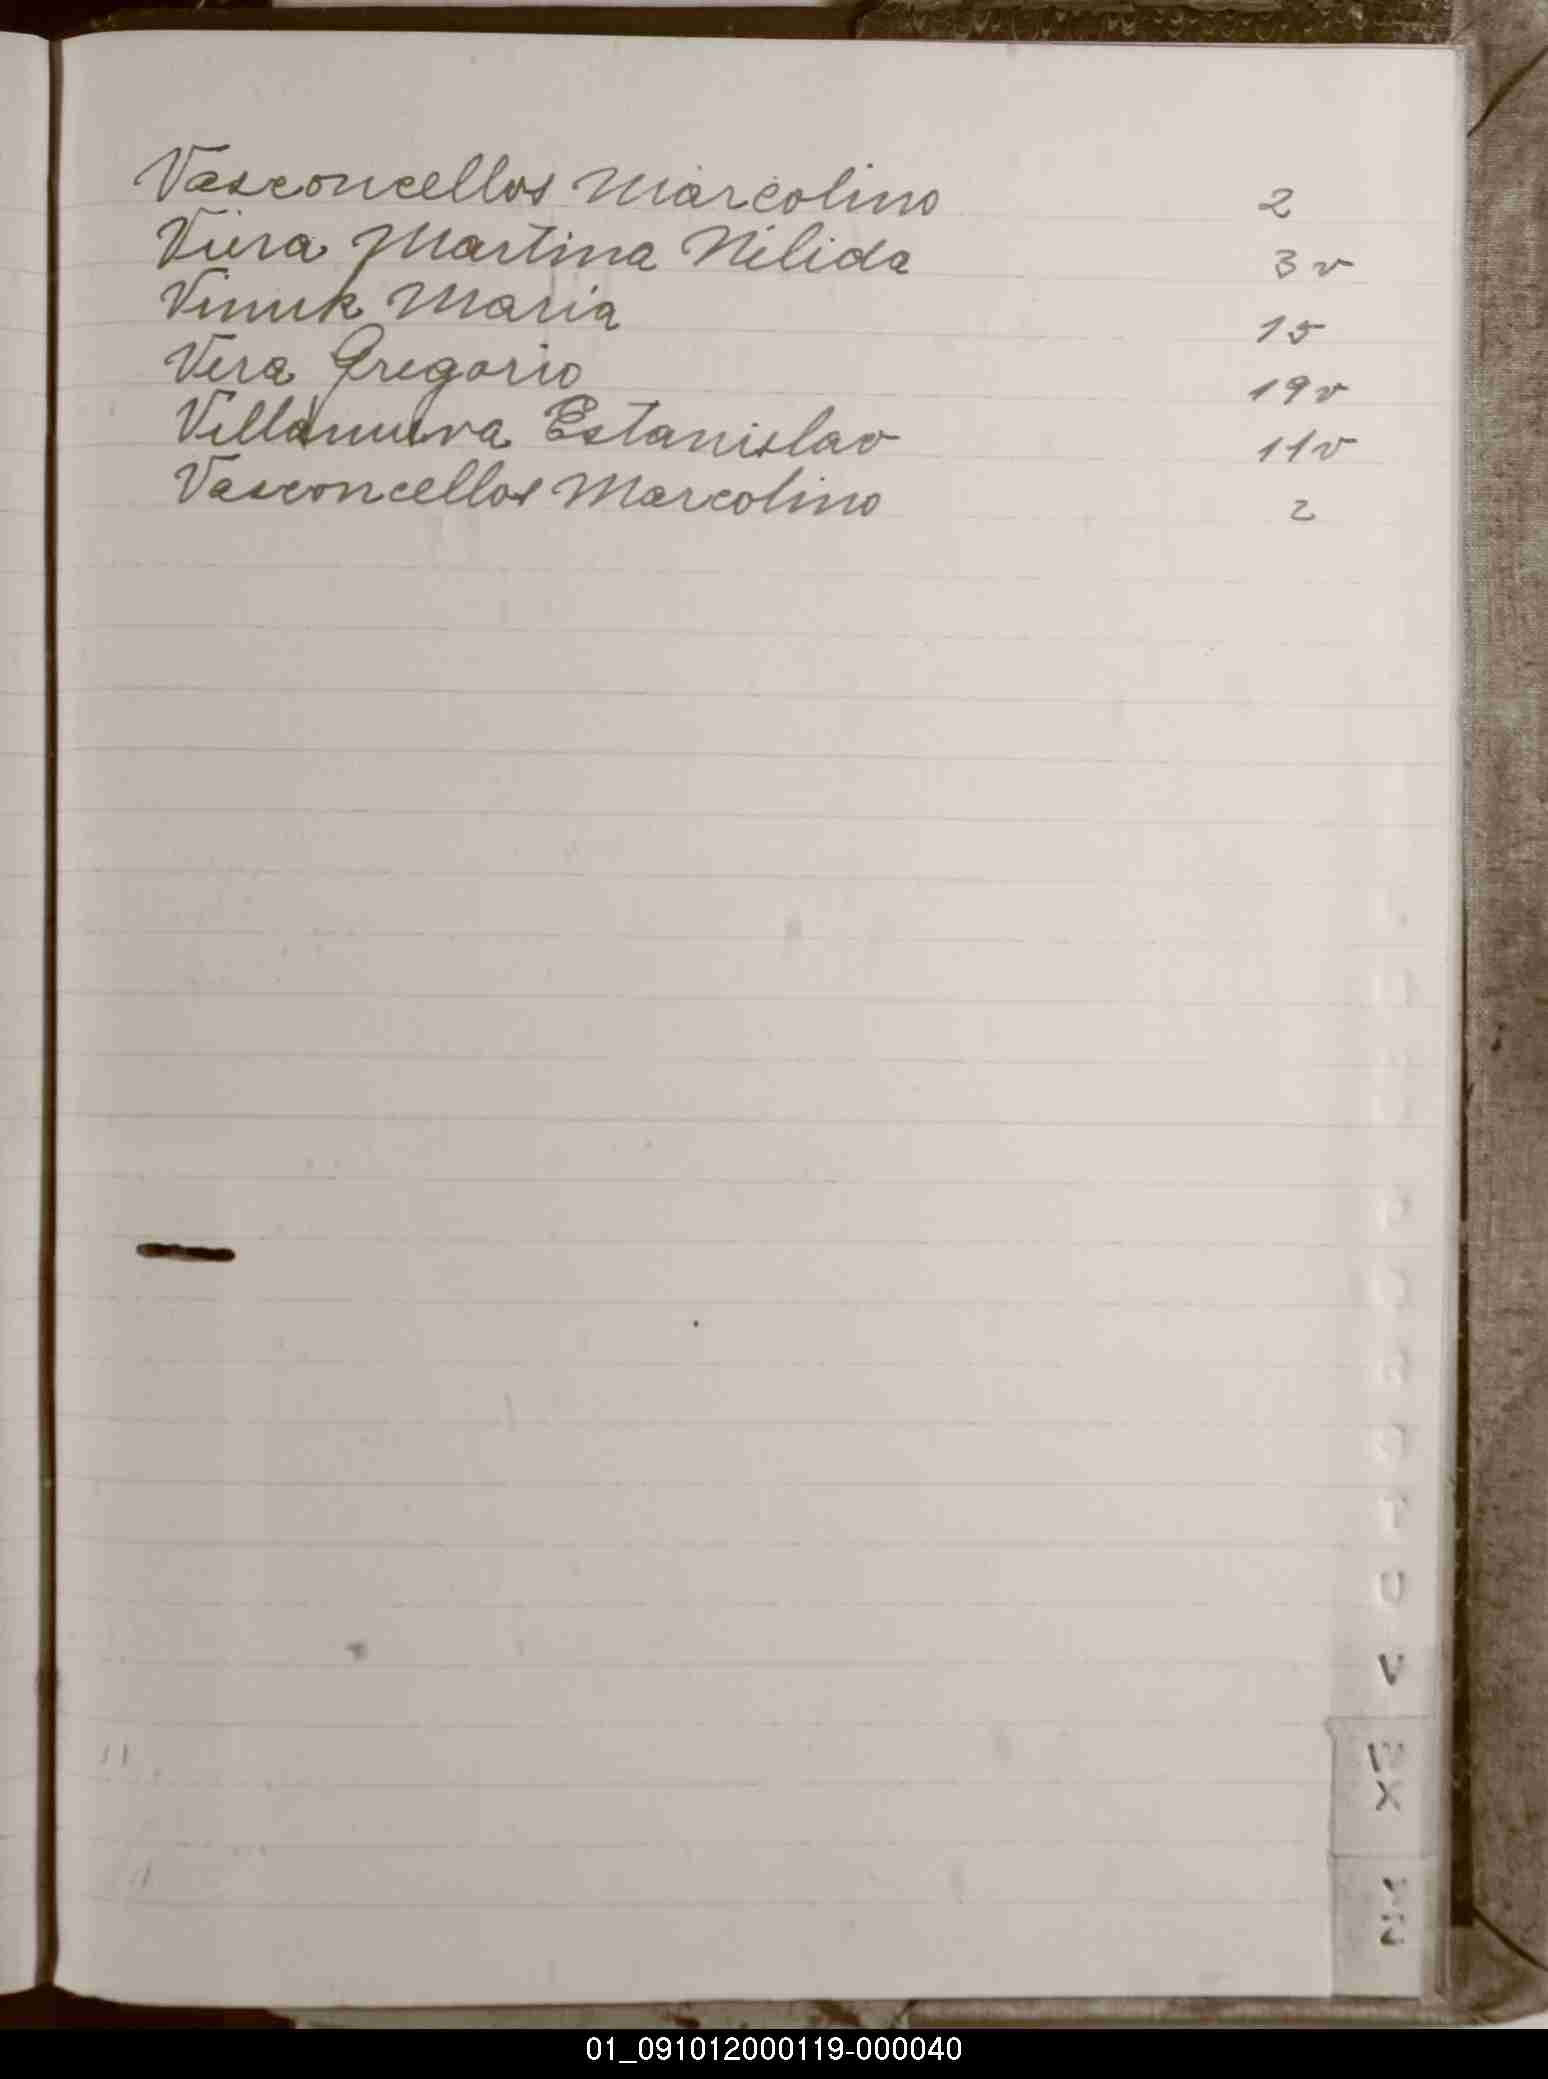 Vasconcellos Marcolino 2
Viera Martina Nélida 3v
Vinuk Maria 15
Vera Gregorio 19v
Villanueva Estanislao 11v
Vasconcellos Marcolino 2
U
V
W
X
Y
Z
01_091012000119-000040